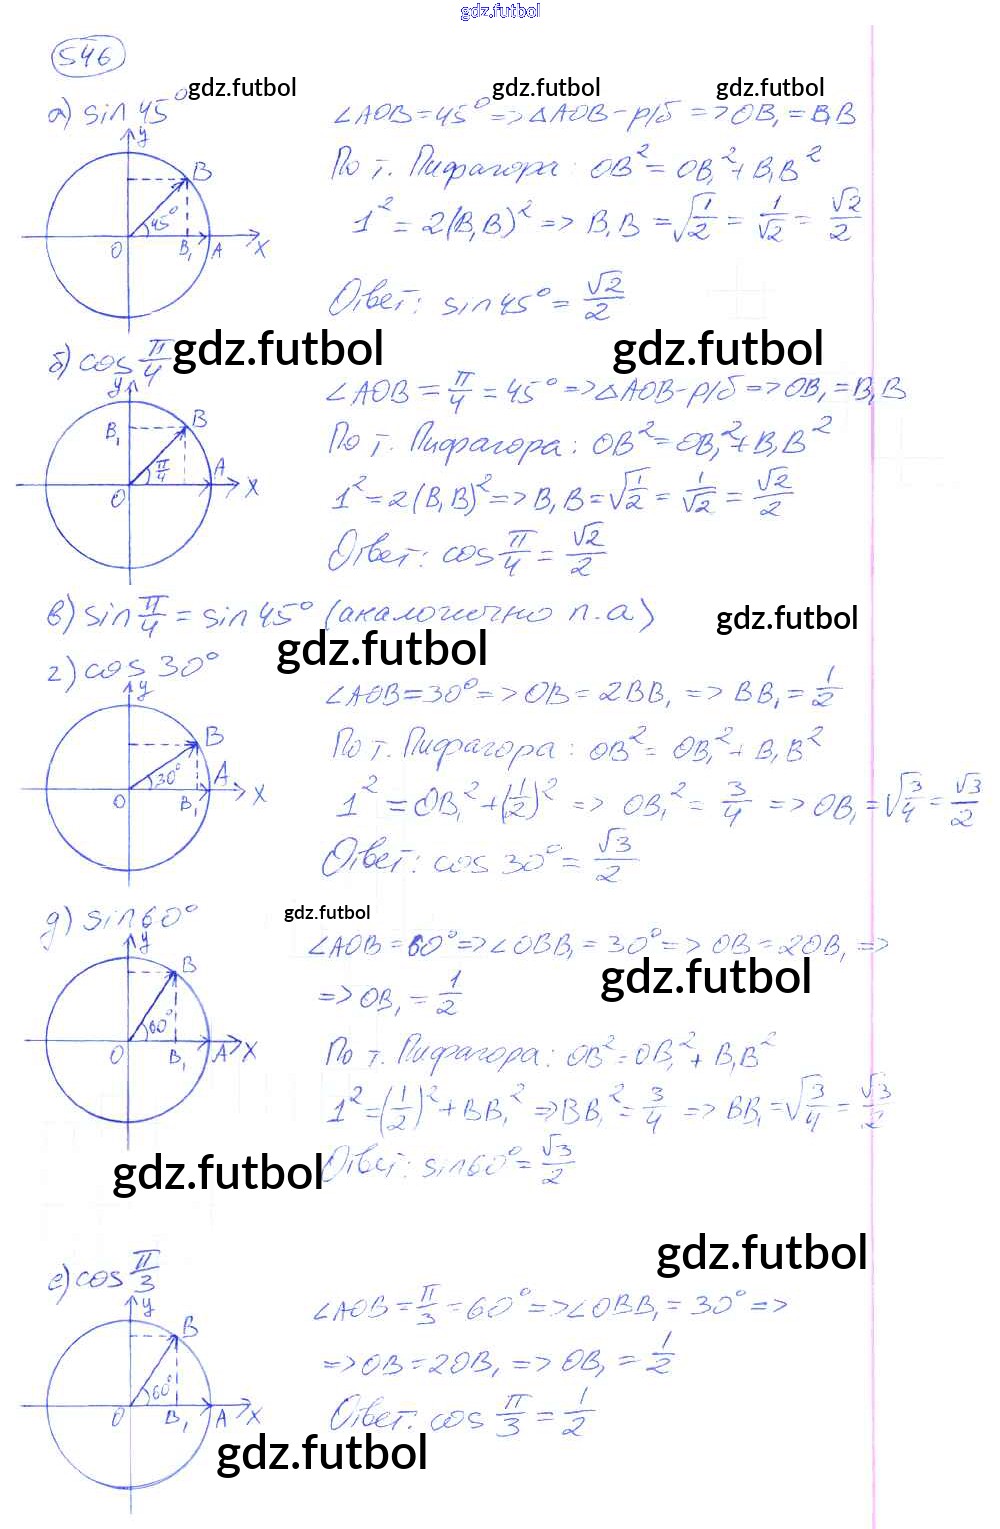 gdz.futbol
546
а) sin 45°
gdz.futbol gdz.futbol gdz.futbol
∠AOB = 45° => △AOB - р/б => OB₁ = B₁B
По т. Пифагора: OB² = OB₁² + B₁B²
1² = 2(B₁B)² => B₁B = √1/2 = 1/√2 = √2/2
y
B
45°
O B₁ A x
Ответ: sin 45° = √2/2
б) cos π/4
gdz.futbol gdz.futbol
∠AOB = π/4 = 45° => △AOB - р/б => OB₁ = B₁B
По т. Пифагора: OB² = OB₁² + B₁B²
1² = 2(B₁B)² => B₁B = √1/2 = 1/√2 = √2/2
y
B₁ B
π/4
O A x
Ответ: cos π/4 = √2/2
в) sin π/4 = sin 45° (аналогично п. а)
gdz.futbol
gdz.futbol
г) cos 30°
∠AOB = 30° => OB = 2BB₁ => BB₁ = 1/2
По т. Пифагора: OB² = OB₁² + B₁B²
1² = OB₁² + (1/2)² => OB₁² = 3/4 => OB₁ = √3/4 = √3/2
y
B
30°
O B₁ A x
Ответ: cos 30° = √3/2
д) sin 60°
gdz.futbol
∠AOB = 60° => ∠OBB₁ = 30° => OB = 2OB₁ =>
gdz.futbol
=> OB₁ = 1/2
По т. Пифагора: OB² = OB₁² + B₁B²
1² = (1/2)² + BB₁² => BB₁² = 3/4 => BB₁ = √3/4 = √3/2
y
B
60°
O B₁ A x
Ответ: sin 60° = √3/2
gdz.futbol
gdz.futbol
е) cos π/3
∠AOB = π/3 = 60° => ∠OBB₁ = 30° =>
=> OB = 2OB₁ => OB₁ = 1/2
y
B
60°
O B₁ A x
Ответ: cos π/3 = 1/2
gdz.futbol